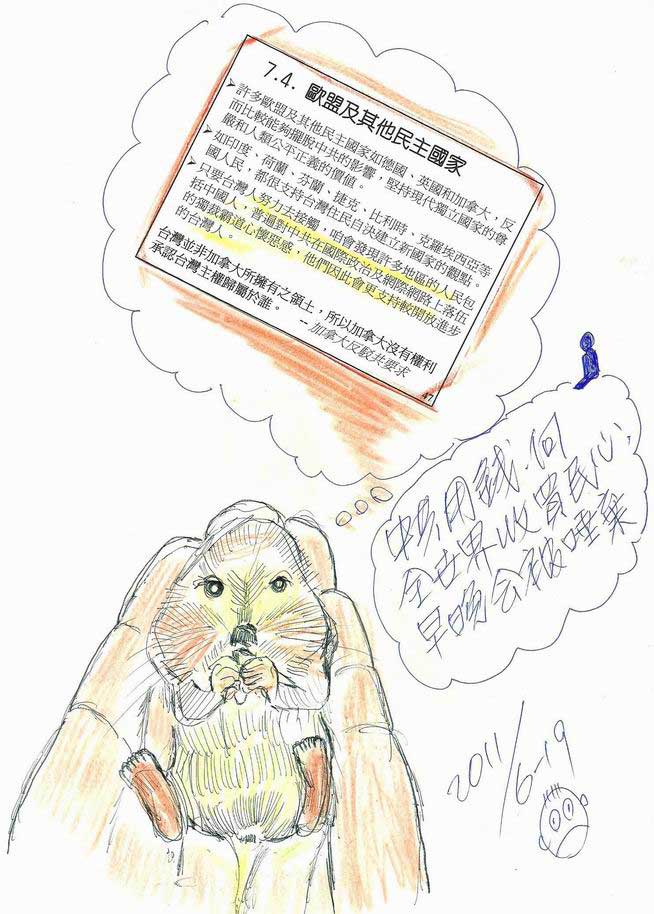 7.4. 歐盟及其他民主國家
➢許多歐盟及其他民主國家如德國、英國和加拿大，反
而比較能夠擺脫中共的影響，堅持現代獨立國家的尊
嚴和人類公平正義的價值。
➢如印度、荷蘭、芬蘭、捷克、比利時、克羅埃西亞等
國人民，都很支持台灣住民自決建立新國家的觀點。
➢只要台灣人努力去接觸，咱會發現許多地區的人民包
括中國人，普遍對中共在國際政治及網際網路上落伍
的獨裁霸道心懷惡感，他們因此會更支持較開放進步
的台灣人。
台灣並非加拿大所擁有之領土，所以加拿大沒有權利
承認台灣主權歸屬於誰。
-- 加拿大反駁共要求
47
中共用錢向
全世界收買民心，
早晚会被唾棄
2011/6-19